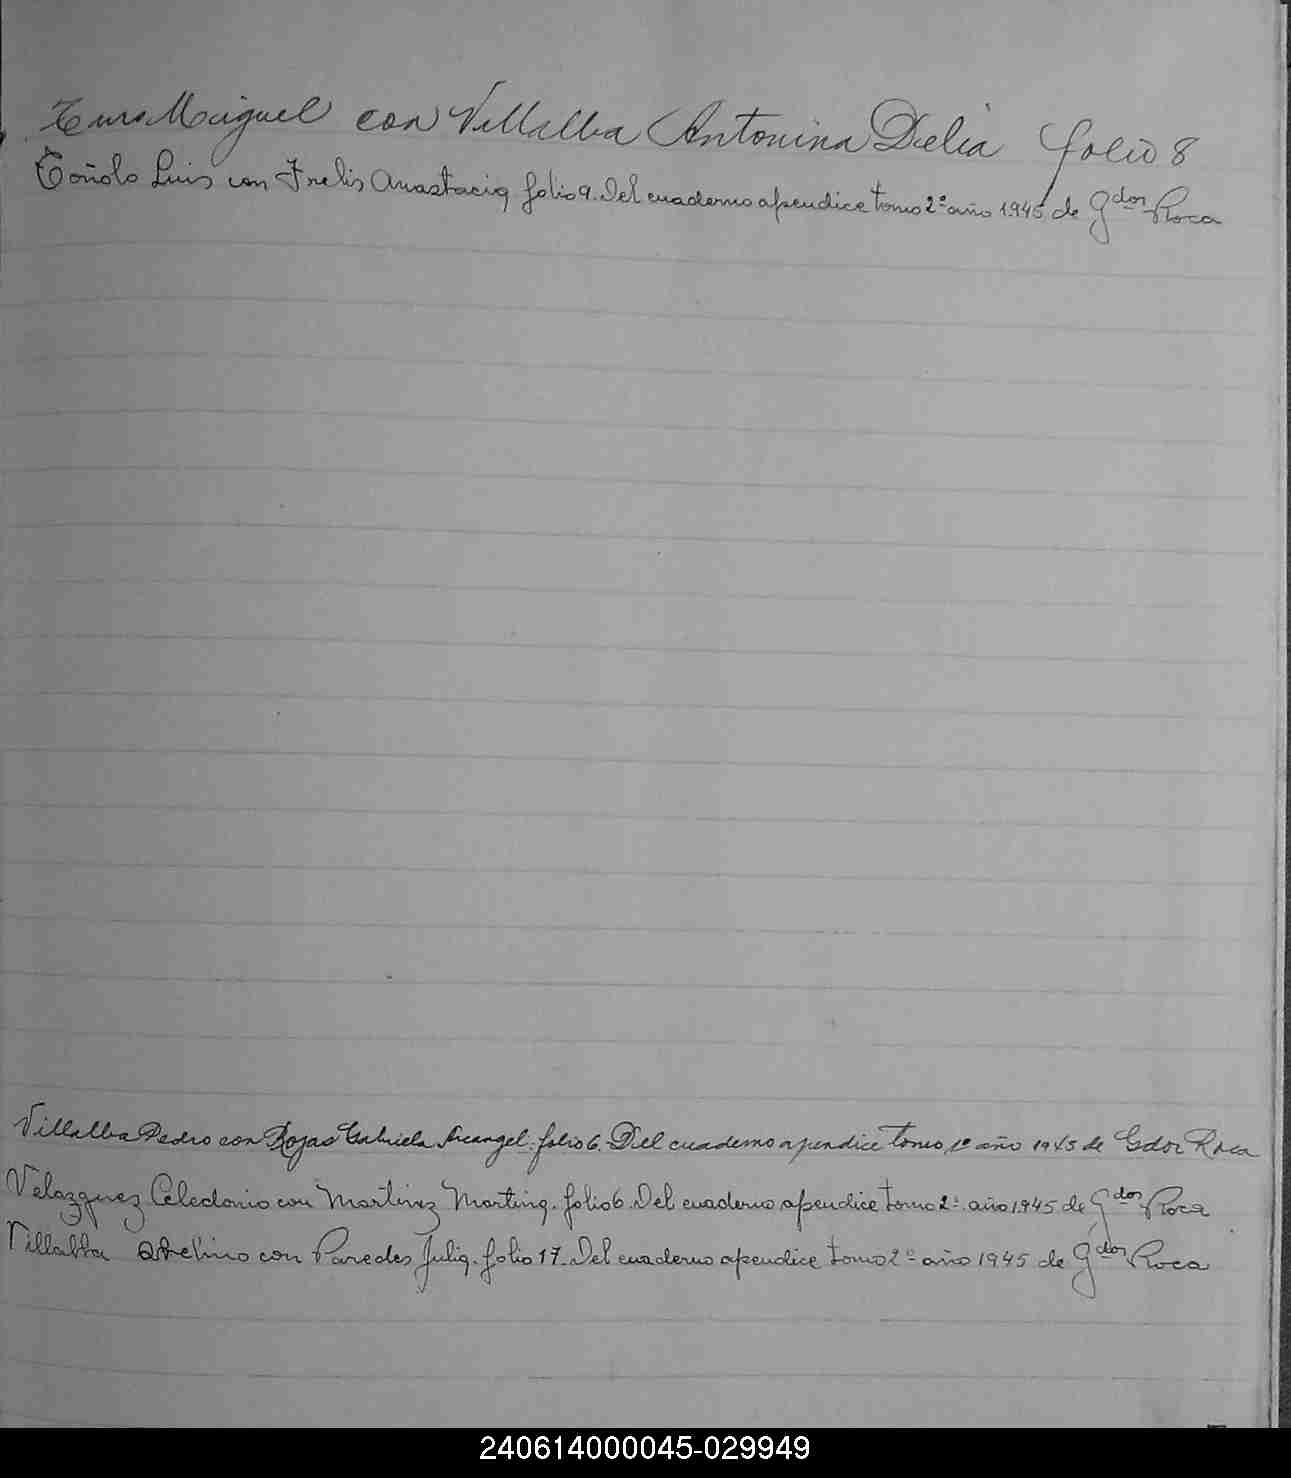 Miguel con Villalba Antonina Delia folio 8
Toñolo Luis con Frelis Anastacia folio 9. Del cuaderno apendice tomo 2º año 1945 de Gdor Roca
Villalba Pedro con Rojas Gabriela Arcangel. folio 6. Del cuaderno apendice tomo 1º año 1945 de Gdor Roca
Velazquez Celedonio con Martinez Martina. folio 6. Del cuaderno apendice tomo 2º año 1945 de Gdor Roca
Villalba Avelino con Paredes Julia. folio 17. Del cuaderno apendice tomo 2º año 1945 de Gdor Roca
240614000045-029949